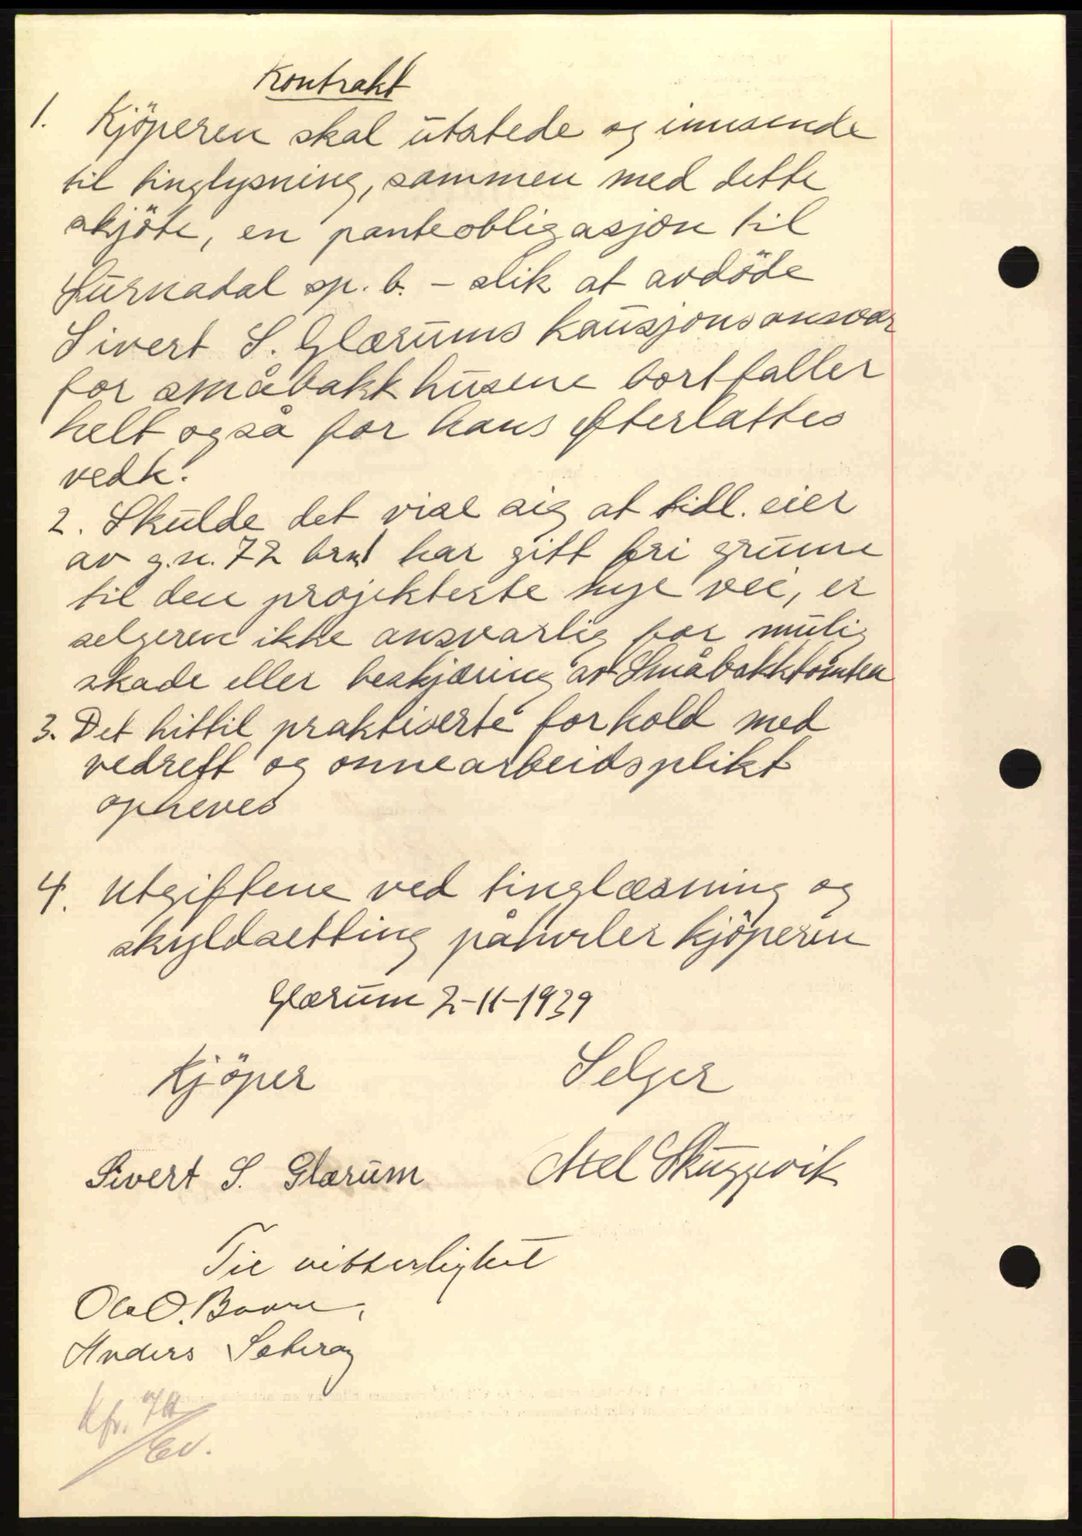 Kontrakt
1. Kjöperen skal utstede og innsende
til tinglysning, sammen med dette
skjöte, en panteobligasjon til
Surnadal sp. b. – slik at avdöde
Sivert S. Glærums kausjonsansvar
for småbakkhusene bortfaller
helt også for hans efterlattes
vedk.
2. Skulde det vise sig at tidl. eier
av g.n. 72 brn 1 har gitt fri grunn
til den projekterte nye vei, er
selgeren ikke ansvarlig for mulig
skade eller beskjæring av Småbakktomten
3. Det hittil praktiserte forhold med
vedrett og onnearbeidsplikt
opheves
4. Utgiftene ved tinglæsning og
skyldsetting påhviler kjöperen
Glærum 2-11-1939
Kjöper Selger
Sivert S. Glærum Axel Skuggevik
Til vitterlighet
Ola O. Bævre.
Anders Sæterøy
Kfr.